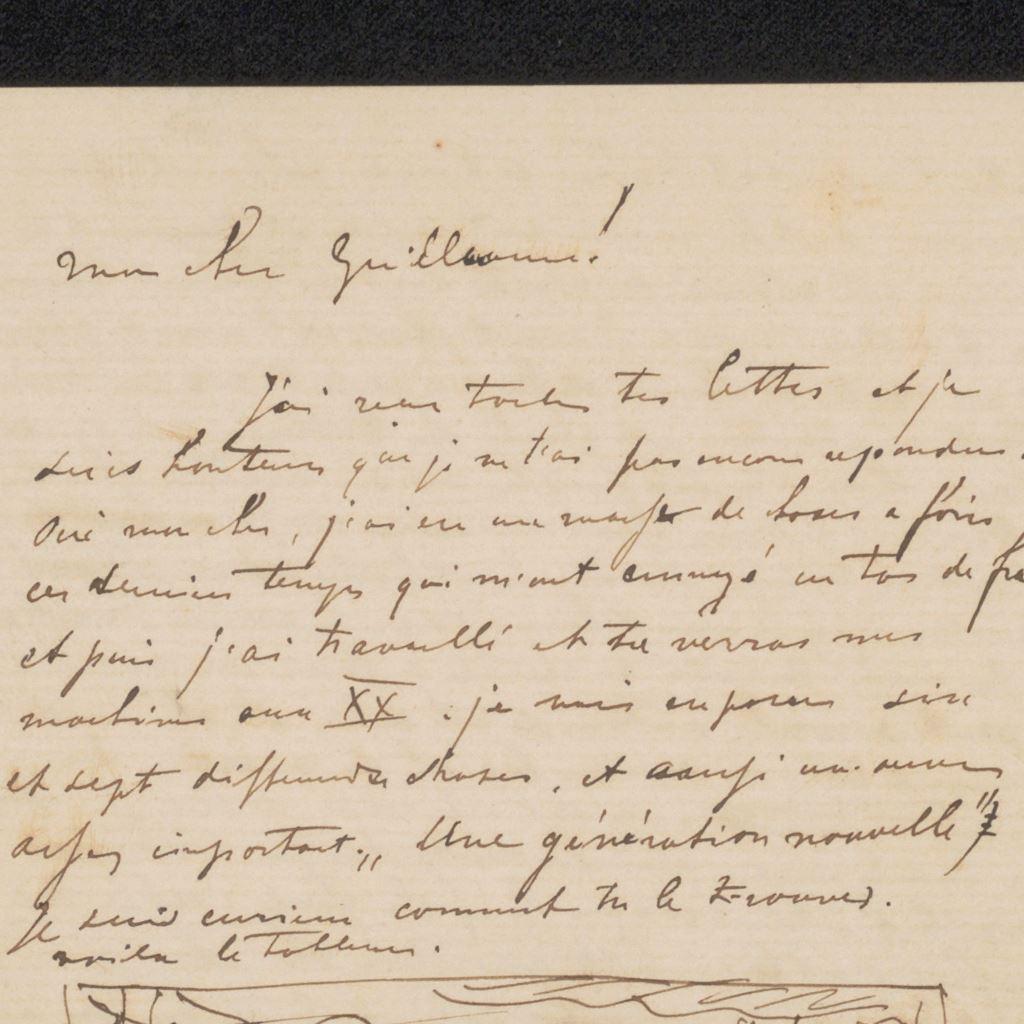 Mon cher Guillaume!
J'ai reçu toutes tes lettres et je
suis honteux que je ne t'ai pas encore repondu.
Oui mon cher, j'ai eu une masse de choses a fair
ces derniers temps qui m'ont ennuyé un tas de
et puis j'ai travaillé et tu verras mes
machines aux XX. je vais exposer six
et sept differents choses, et aussi un oeuvre
assez important „Une génération nouvelle"
je suis curieux comment tu le trouves.
voila le tableau.